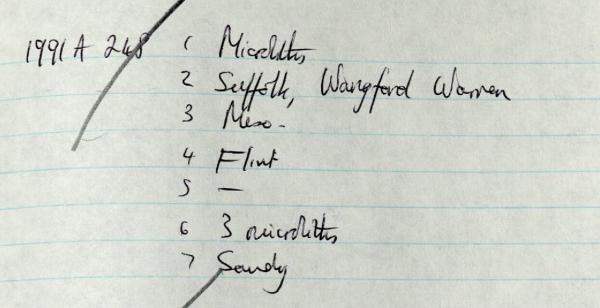 1991A 248 1 Microliths
2 Suffolk, Wangford Warren
3 Meso.
4 Flint
5 —
6 3 microliths
7 Sandy